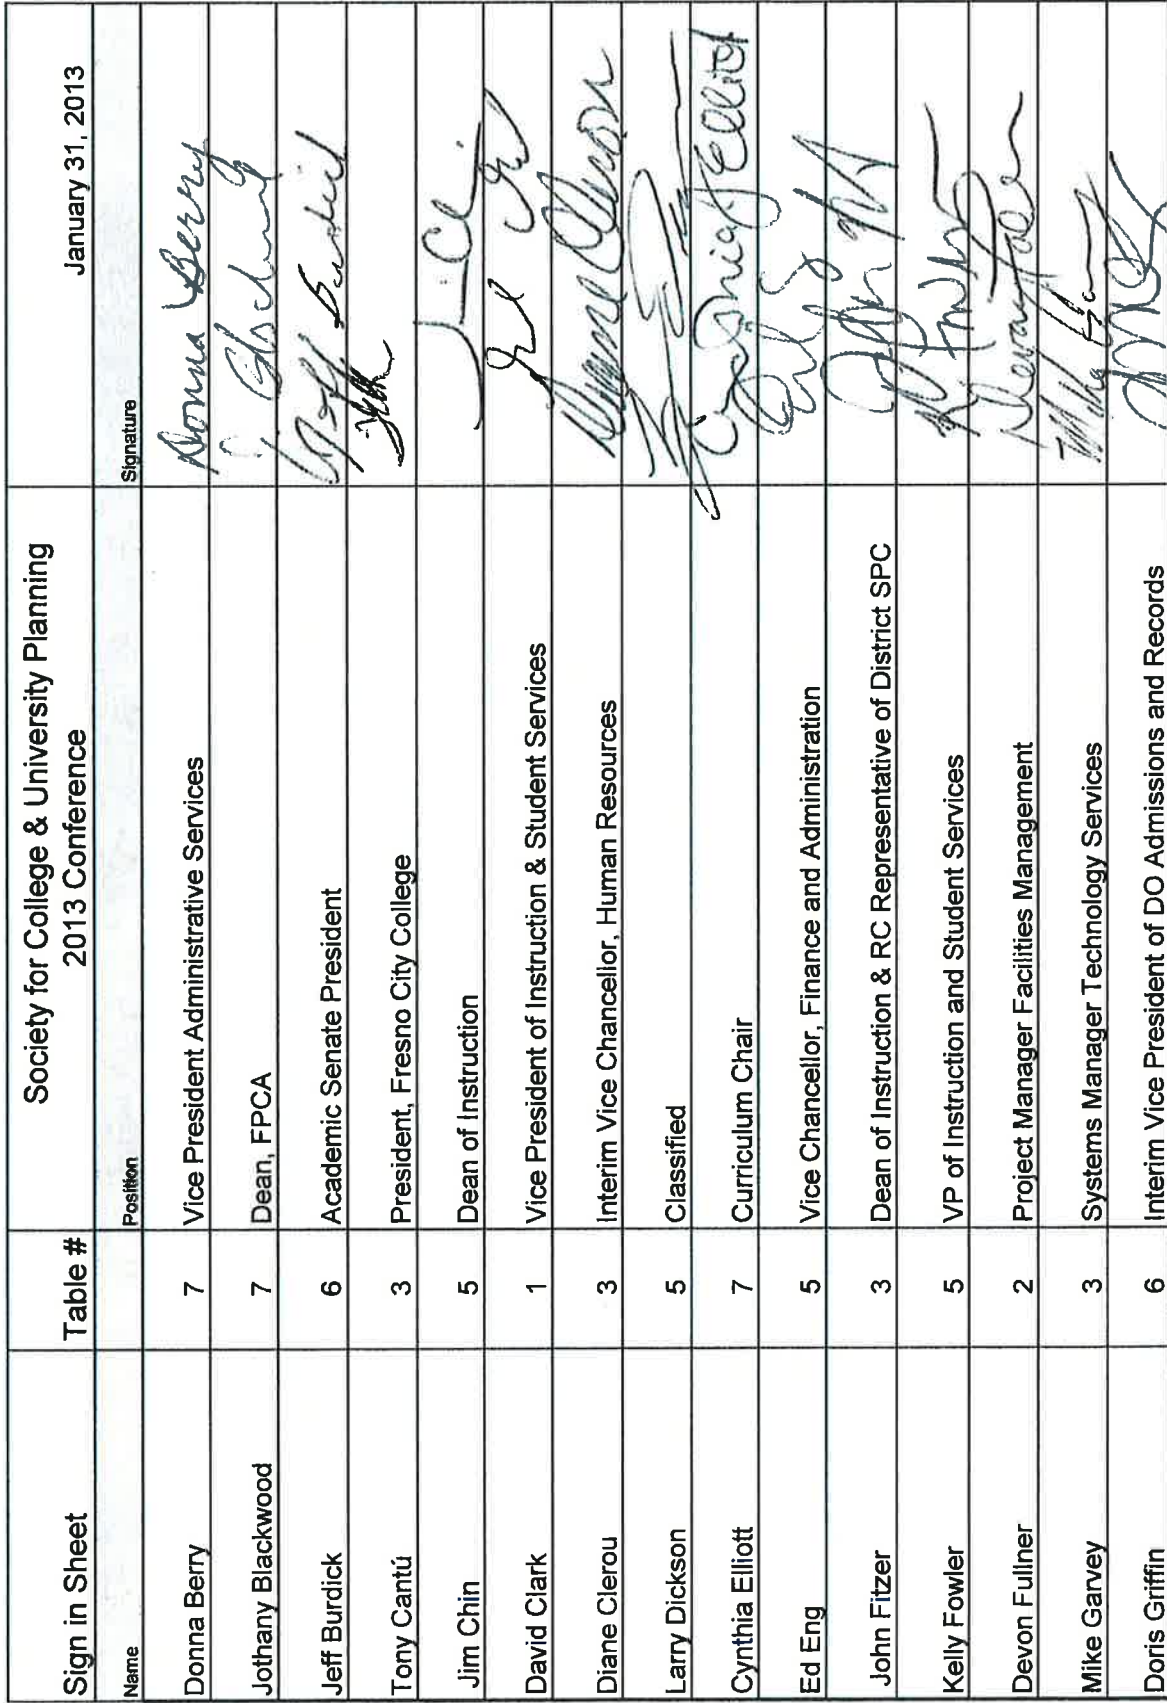 Sign in Sheet Table # Society for College & University Planning January 31, 2013
2013 Conference
Name Position Signature
Donna Berry 7 Vice President Administrative Services Donna Berry
Jothany Blackwood 7 Dean, FPCA
Jeff Burdick 6 Academic Senate President Jeff Burdick
Tony Cantú 3 President, Fresno City College
Jim Chin 5 Dean of Instruction
David Clark 1 Vice President of Instruction & Student Services
Diane Clerou 3 Interim Vice Chancellor, Human Resources
Larry Dickson 5 Classified
Cynthia Elliott 7 Curriculum Chair Cynthia Elliott
Ed Eng 5 Vice Chancellor, Finance and Administration
John Fitzer 3 Dean of Instruction & RC Representative of District SPC
Kelly Fowler 5 VP of Instruction and Student Services
Devon Fullner 2 Project Manager Facilities Management
Mike Garvey 3 Systems Manager Technology Services
Doris Griffin 6 Interim Vice President of DO Admissions and Records